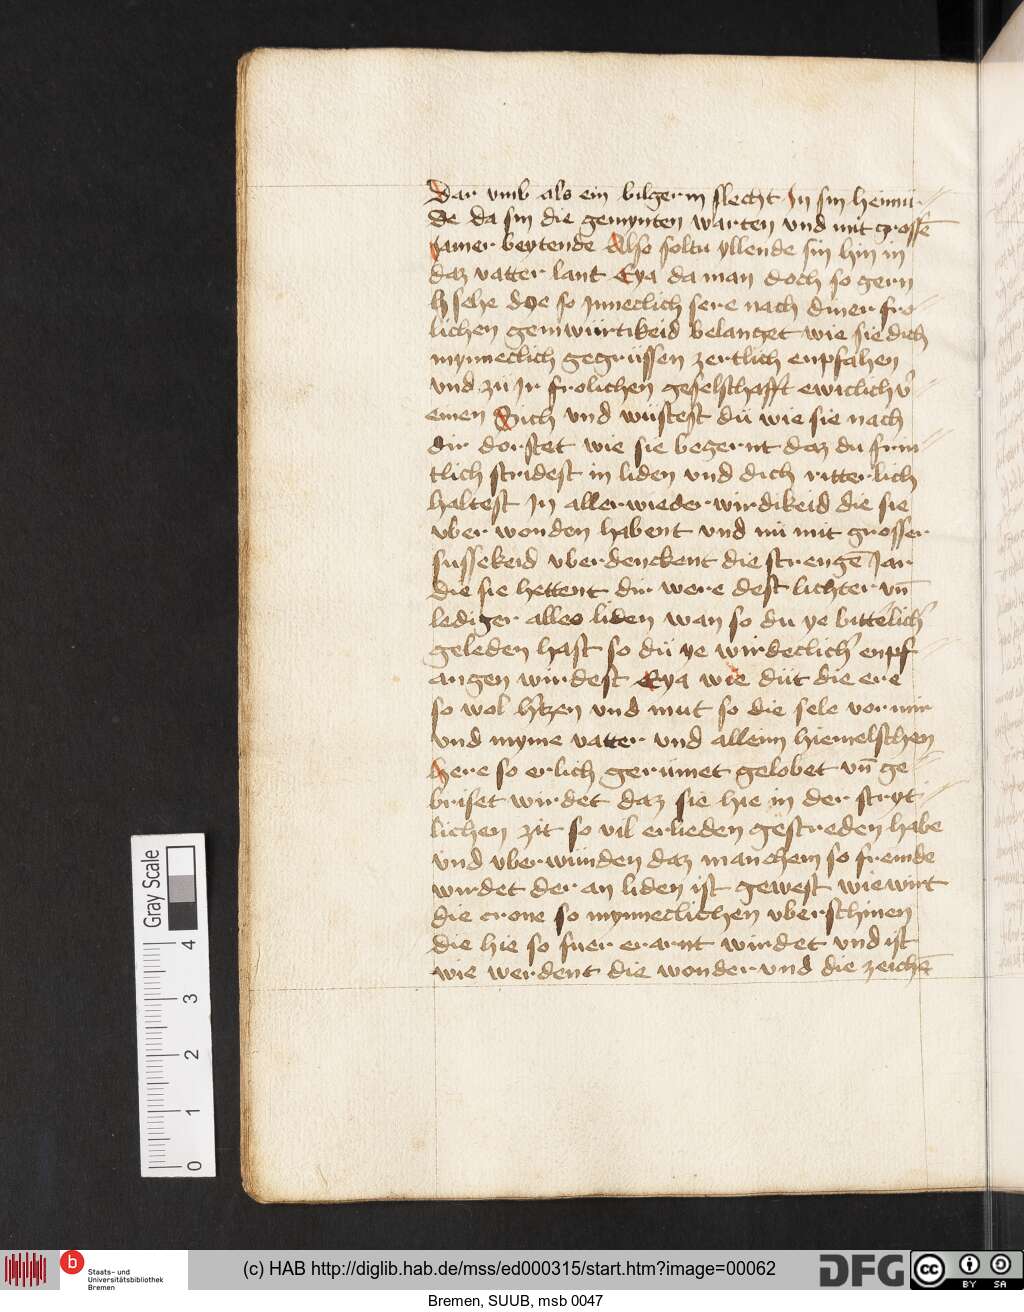 dar vmb als ein bilgerin slecht In sin heimü
de da sin die gemynten warten vnd mit grossē
Jamer beytende Also soltu yllende sin hin in
daz vatter lant Eya da man doch so gern
sehe dye so Jnneclich sere nach diner fro
lichen genwürtikeid belanget wie sie dich
mynneclich gegrüssen zertlich enpfahen
vnd zü Jr frolichen geselschafft ewiclich
einen Sich vnd wüstest dü wie sie nach
dir dorstet wie sie begernt daz du frim
tlich stridest in liden vnd dich ritterlich
haltest In aller wieder wirdikeid die sie
vber wonden habent vnd nü mit grosser
sussekeid vberdenckent die strengē Jar
die sie hettent dir were dest lichter vn̄
lediger alles liden wan so du ye bitt'elich'
geleden hast so dü ye wirdeclich' enpf
angen wirdest Eya wie düt die ere
so wol h'tzen vnd mut so die sele vor mir
vnd myme vatter vnd allem hiemelschen
here so erlich gerümet gelobet vn̄ ge
briset wirdet daz sie hie in der stryt
lichen zit so vil erlieden gestreden habe
vnd vberwunden daz manchem so fremde
wirdet der an liden ist gewest wie wirt
die crone so mynneclichen vberschinen
die hie so suer erarnt wirdet vnd ist
wie werdent die wonder vnd die zeichē
Gray Scale
4
3
2
1
0
b
Staats- und
Universitätsbibliothek
Bremen
(c) HAB http://diglib.hab.de/mss/ed000315/start.htm?image=00062
DFG
cc BY SA
Bremen, SUUB, msb 0047